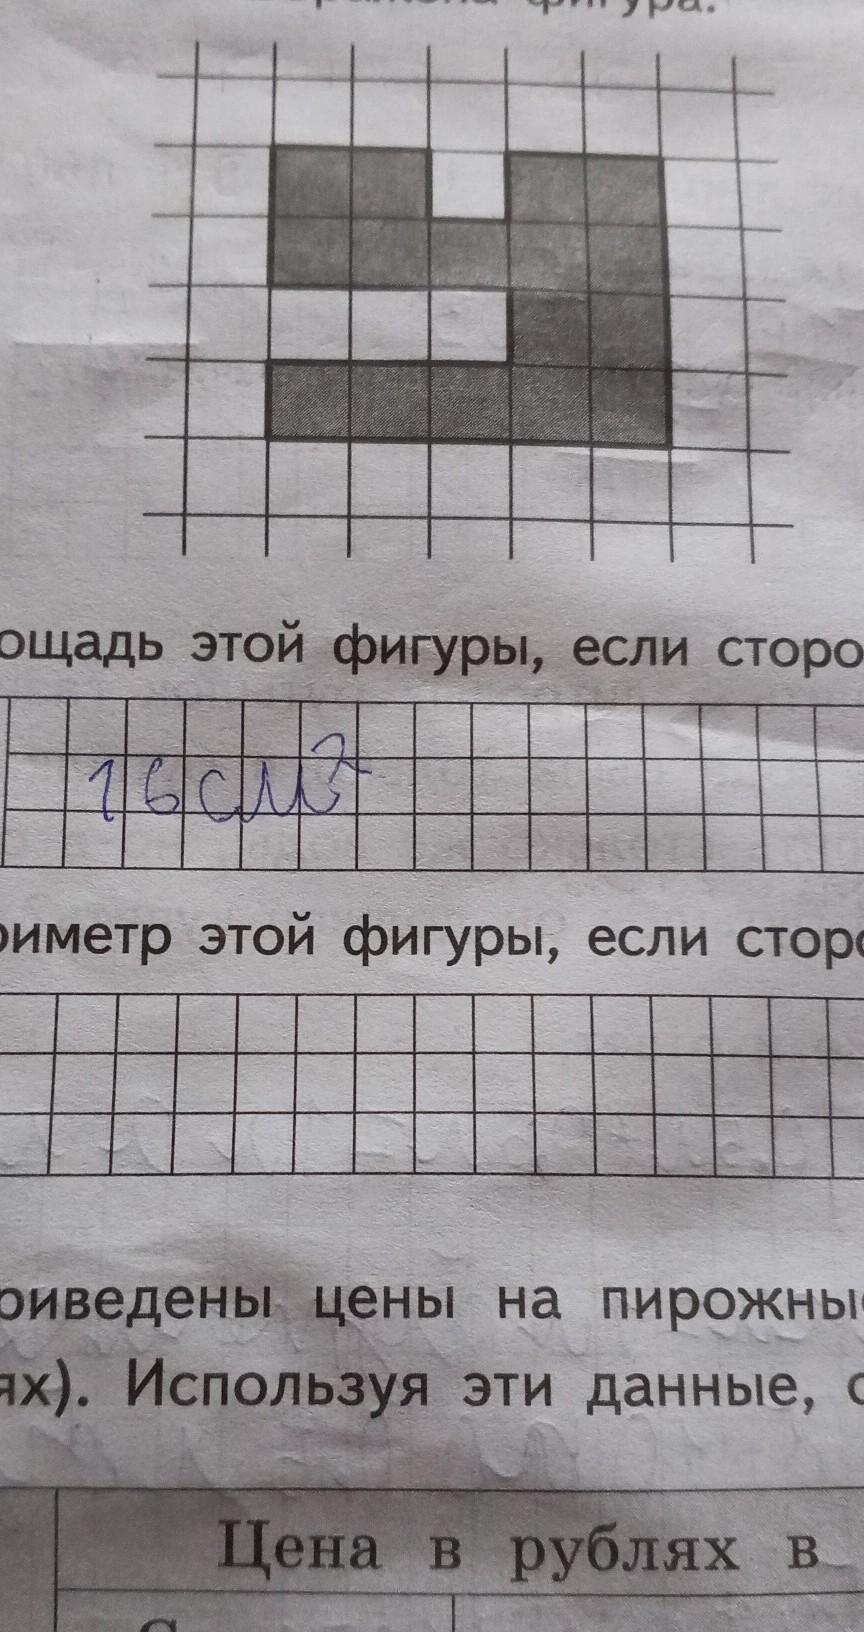 фигура.
ощадь этой фигуры, если сторо
16 см²
риметр этой фигуры, если сторо
риведены цены на пирожны
ях). Используя эти данные, с
Цена в рублях в
С